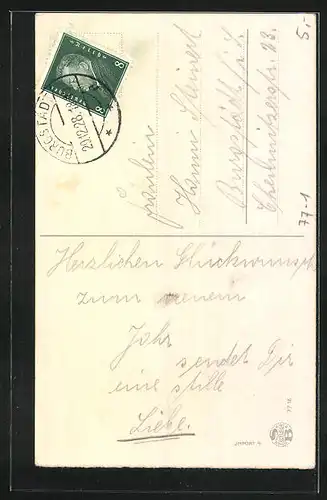 5,-
8 8
BURGSTÄDT
Fräulein
Hanni Steinert
Burgstädt i. S.
Chemnitzerstr. 23.
77-1
Herzlichen Glückwunsch
zum neuen
Jahr
sendet Dir
eine stille
Liebe.